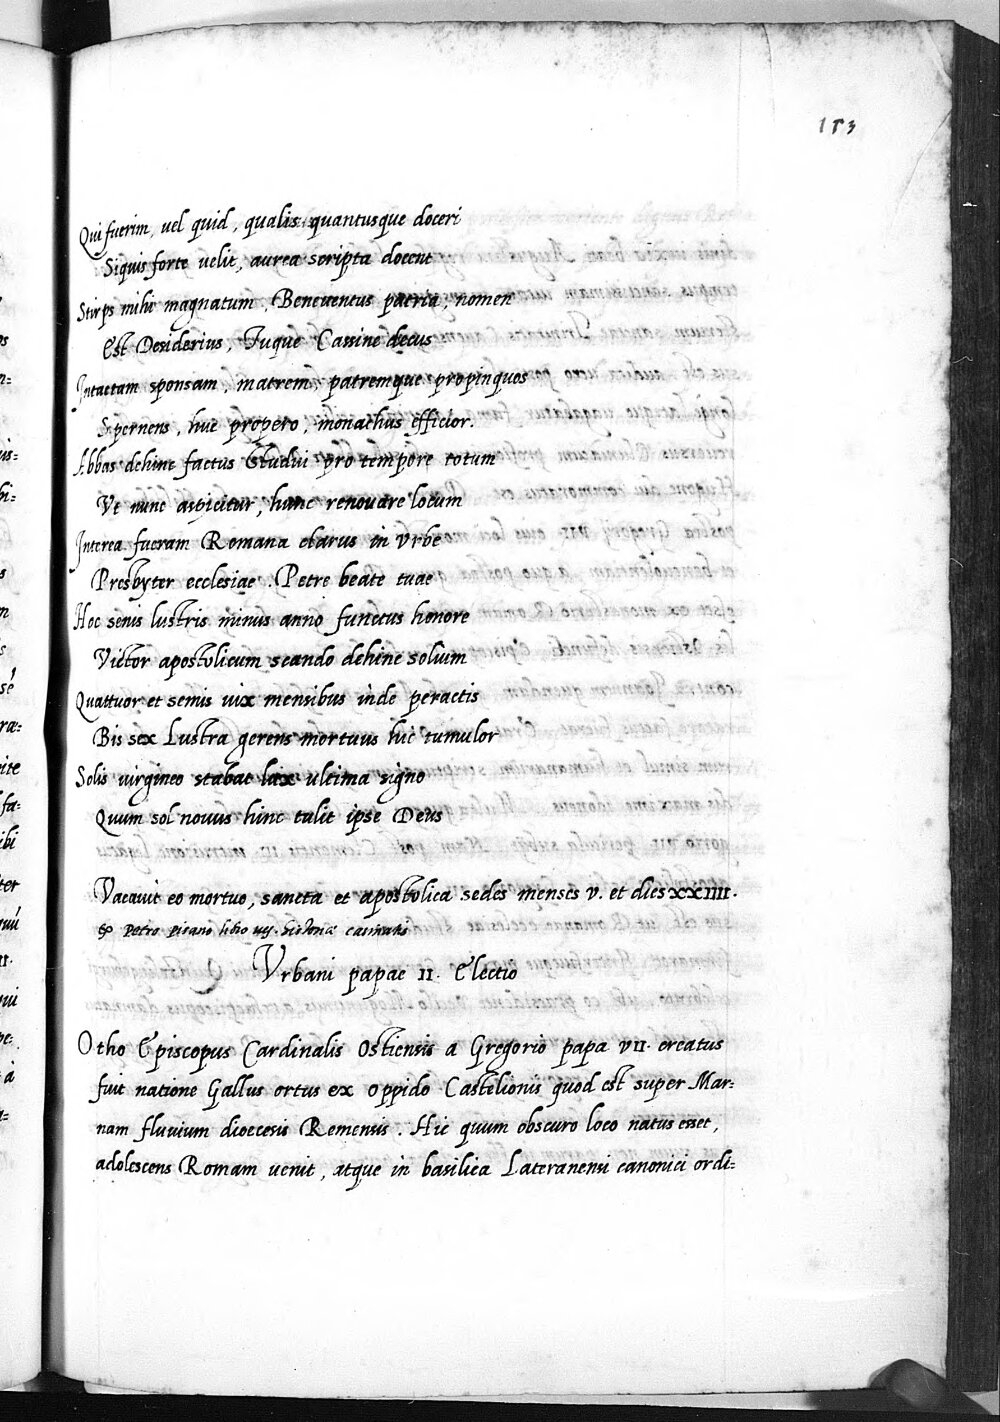 153
Qui fuerim, uel quid, qualis, quantusque doceri
Siquis forte uelit, aurea scripta docent
Stirps mihi magnatum, Beneuentus patria, nomen
Est Desiderius, Tuque Cassine decus
Intactam sponsam, matrem, patremque propinquos
Spernens, huc propero, monachus efficior.
Abbas dehinc factus studui pro tempore totum
Vt nunc aspicitur, hunc renouare locum
Interea fueram Romana clarus in vrbe
Presbyter ecclesiae. Petre beate tuae
Hoc senis lustris minus anno functus honore
Victor apostolicum scando dehinc solium
Quattuor et semis uix mensibus inde peractis
Bis sex Lustra gerens mortuus hic tumulor
Solis uirgineo stabat lux ultima signo
Quum sol nouus hinc tulit ipse Deus
Vacauit eo mortuo, sancta et apostolica sedes menses v. et dies XXIIII.
ex Petro Pisano libro
Vrbani papae II. Electio
Otho Episcopus Cardinalis Ostiensis a Gregorio papa VII. creatus
fuit natione Gallus ortus ex oppido Castelionis quod est super Mar=
nam fluuium dioecesis Remensis. Hic quum obscuro loco natus esset,
adolescens Romam uenit, atque in basilica Lateranensi canonici ordi=